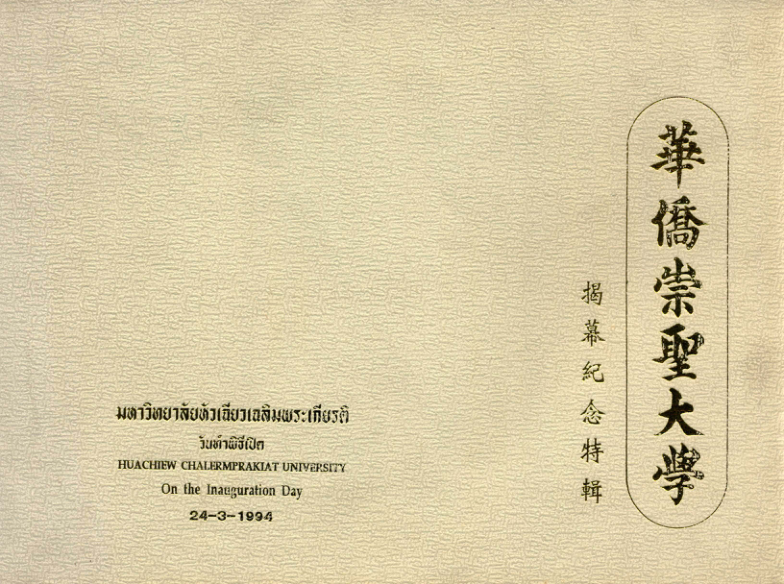 華僑崇聖大學
揭幕紀念特輯
มหาวิทยาลัยหัวเฉียวเฉลิมพระเกียรติ
วันทำพิธีเปิด
HUACHIEW CHALERMPRAKIAT UNIVERSITY
On the Inauguration Day
24-3-1994